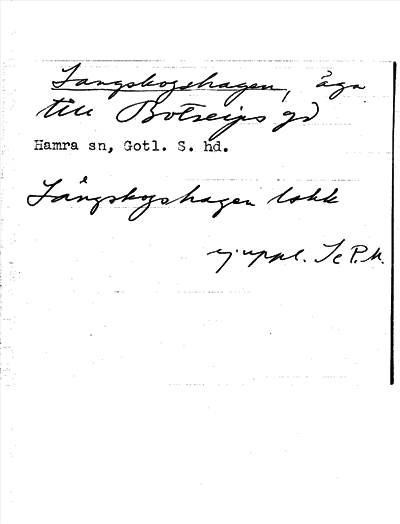 Langskogshagen, äga
till Botreifs gd
Hamra sn, Gotl. S. hd.
Långskogshagen lokk
ej uppt. Se P.M.